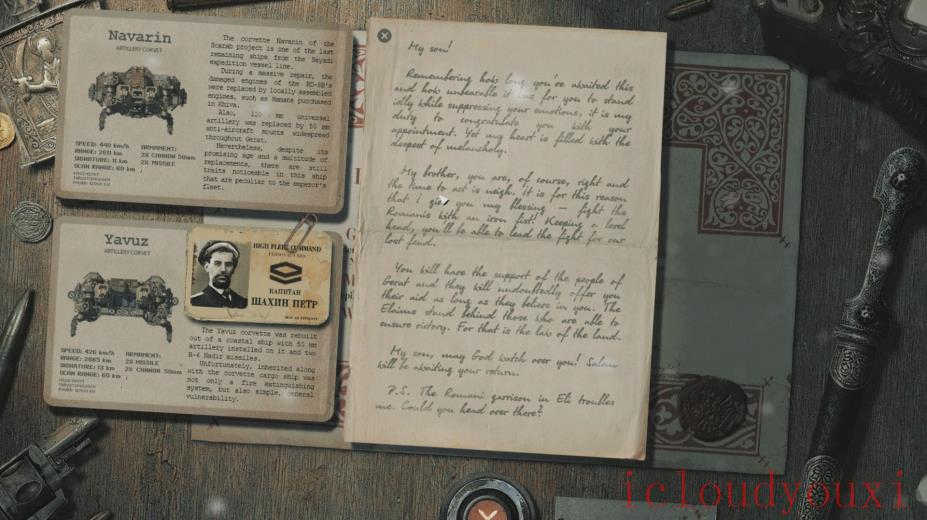 Navarin
ARTILLERY CORVET
The corvette Navarin of the
Scarab project is one of the last
remaining ships from the Sayadi
expedition vessel line.
During a massive repair, the
damaged engines of the
were replaced by locally assembled
engines, such as purchased
in Khiva.
Also, 130 mm universal
artillery was replaced by 50 mm
anti-aircraft mounts widespread
throughout Gerat.
Nevertheless, despite its
promising age and a multitude of
replacements, there are still
traits noticeable in this ship
that are peculiar to the emperor's
fleet.
SPEED: 440 km/h
RANGE: km
SIGNATURE: 11 km
SCAN RANGE: 60 km
ARMAMENT:
2X CANNON 50mm
2X MISSILE
Yavuz
ARTILLERY CORVET
HIGH FLEET COMMAND
КАПИТАН
ШАХИН ПЕТР
The Yavuz corvette was rebuilt
out of a coastal ship with 50 mm
artillery installed on it and two
R-4 Nadir missiles.
Unfortunately, inherited along
with the corvette cargo ship was
not only a fire extinguishing
system, but also simple, general
vulnerability.
SPEED: 426 km/h
RANGE: 2865 km
SIGNATURE: 13 km
SCAN RANGE: 60 km
ARMAMENT:
2X MISSILE
2X CANNON 50mm
My son!
Remembering how long you've awaited this
and how unbearable it was for you to stand
idly while suppressing your emotions, it is my
duty to congratulate you with your
appointment. Yet my heart is filled with the
deepest of melancholy.
My brother, you are, of course, right and
the time to act is neigh. It is for this reason
that I give you my blessing — fight the
Romanis with an iron fist! Keeping a level
head, you'll be able to lead the fight for our
lost land.
You will have the support of the people of
Gerat and they will undoubtedly offer you
their aid as long as they believe in you. The
Elaims stand behind those who are able to
ensure victory. For that is the law of the land.
My son, may God watch over you! Salem
will be awaiting your return.
P.S. The Romani garrison in Eli troubles
me. Could you head over there?
icloudyouxi